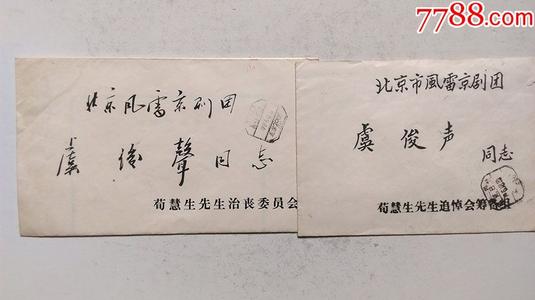 7788.com
北京风雷京剧团
虞俊聲同志
荀慧生先生治丧委员会
北京市風雷京剧团
虞俊声
同志
荀慧生先生追悼会筹备组